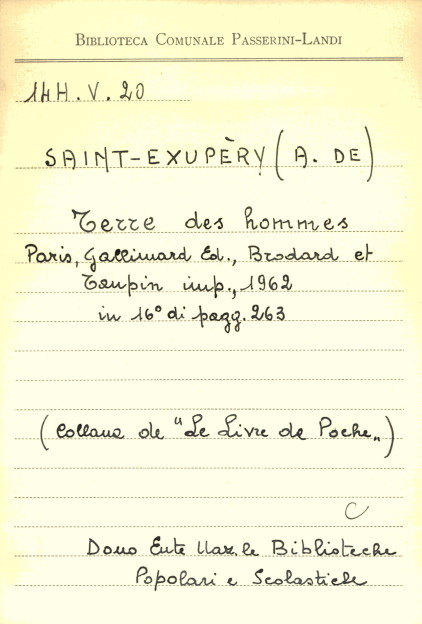 BIBLIOTECA COMUNALE PASSERINI-LANDI
14H.V.20
SAINT-EXUPÈRY (A. DE)
Terre des hommes
Paris, Gallimard Ed., Brodard et
Taupin imp., 1962
in 16° di pagg. 263
(Collana de "Le Livre de Poche„)
C
Dono Ente Naz.le Biblioteche
Popolari e Scolastiche